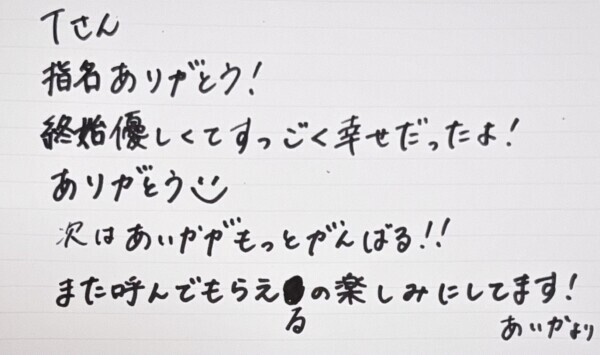 Tさん
指名ありがとう!
終始優しくてすっごく幸せだったよ!
ありがとう
次はあいかがもっとがんばる!!
また呼んでもらえるの楽しみにしてます!
あいかより